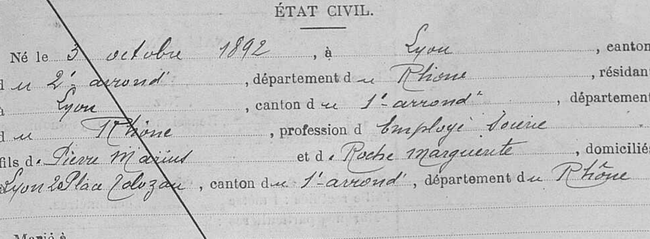 ÉTAT CIVIL.
Né le 3 octobre 1892, à Lyon, canton
du 2e arrondt, département du Rhône, résidant
à Lyon, canton du 1er arrondt, département
du Rhône, profession d Employé
fils de Pierre Marius et de Roche Marguerite, domiciliés
à Lyon 2 Place Tolozan, canton du 1er arrondt, département du Rhône
Marié à